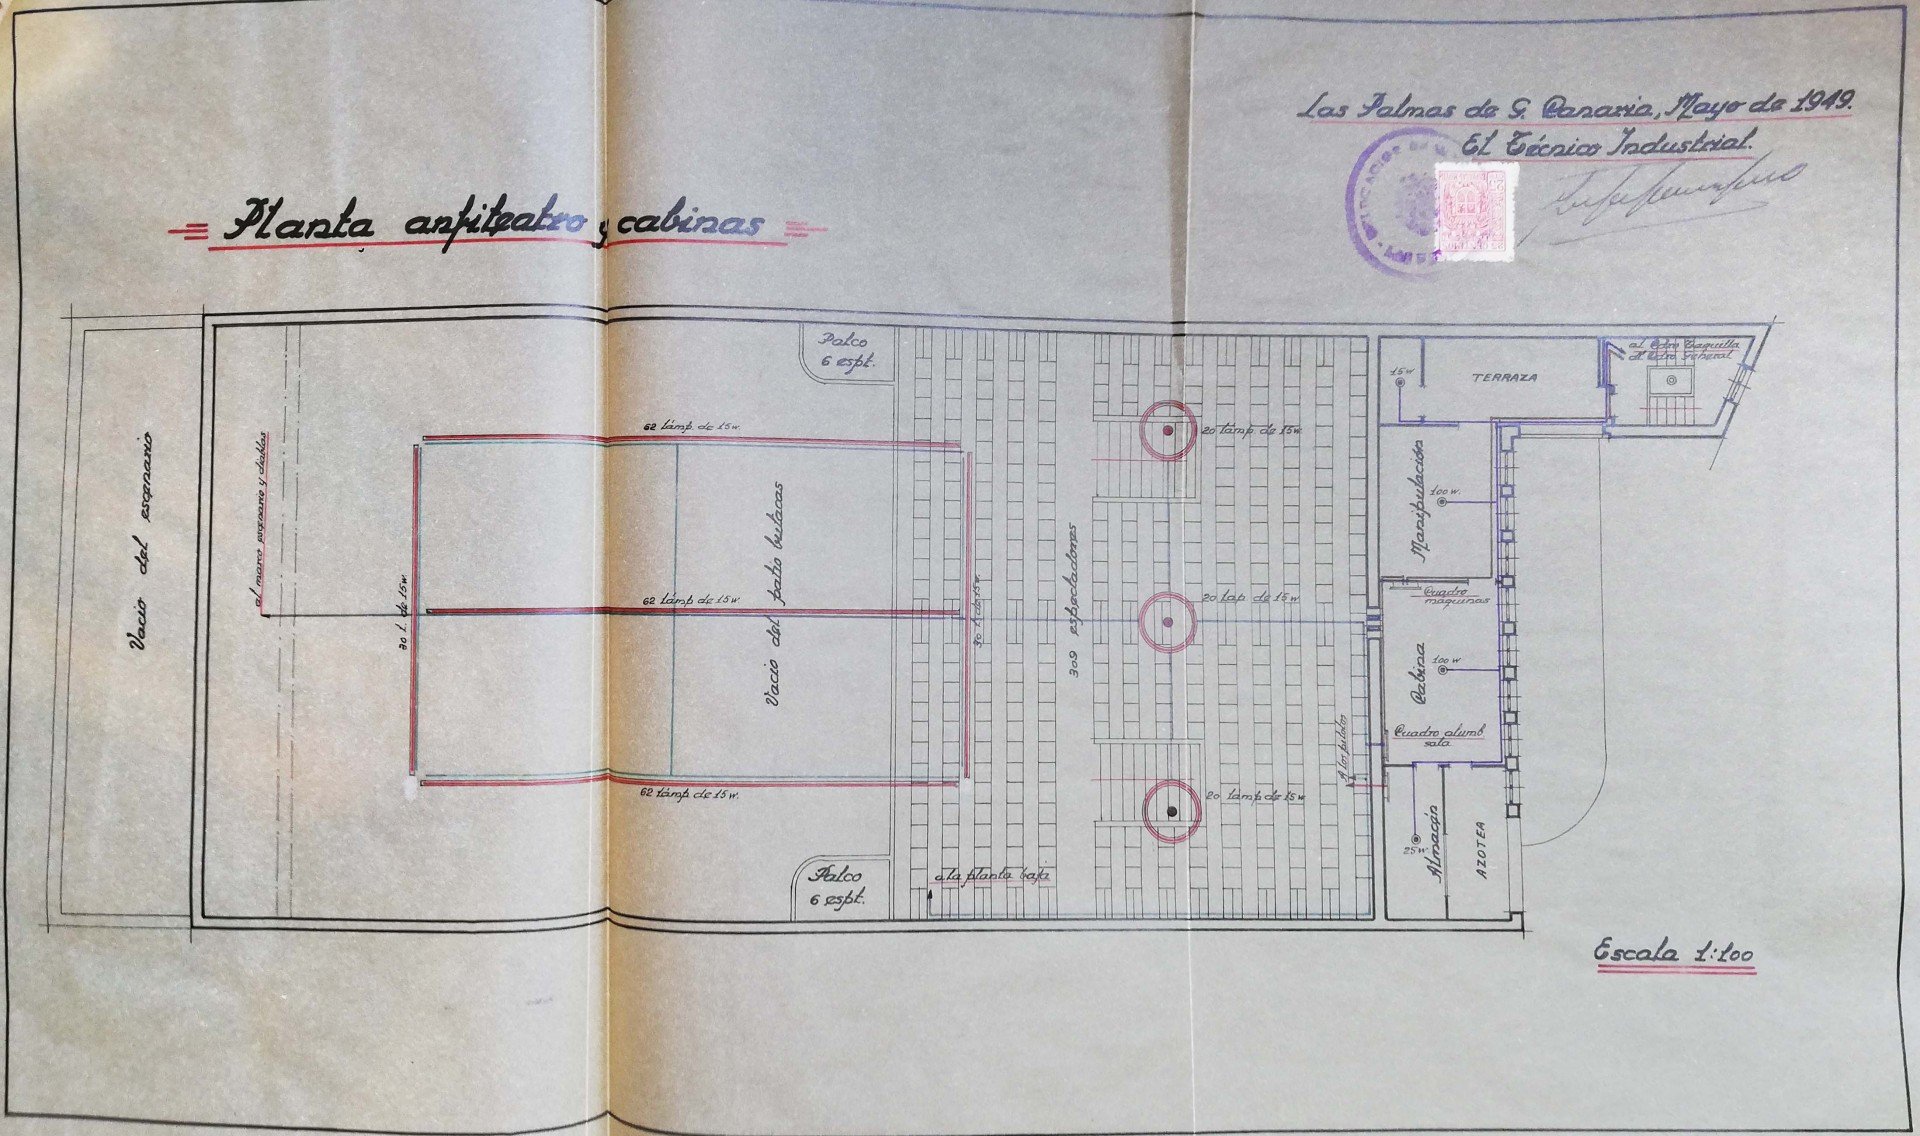 Las Palmas de G. Canaria, Mayo de 1949.
El Técnico Industrial.
Planta anfiteatro y cabinas
Palco
6 espt.
al Cdro Taquilla
al Cdro General
15 w
TERRAZA
62 lámp. de 15 w.
20 lámp. de 15 w.
Vacio del escenario
al marco escenario y diablas
Manipulación
100 w.
Vacio del patio butacas
30 l. de 15 w.
62 lámp de 15 w.
30 l. de 15 w.
309 espectadores
20 lap de 15 w.
Cuadro
maquinas
Cabina
100 w
Cuadro alumb
sala
A los pilotos
62 lámp de 15 w.
20 lámp de 15 w
25 w.
Almacén
AZOTEA
Palco
6 espt.
a la planta baja
Escala 1:100